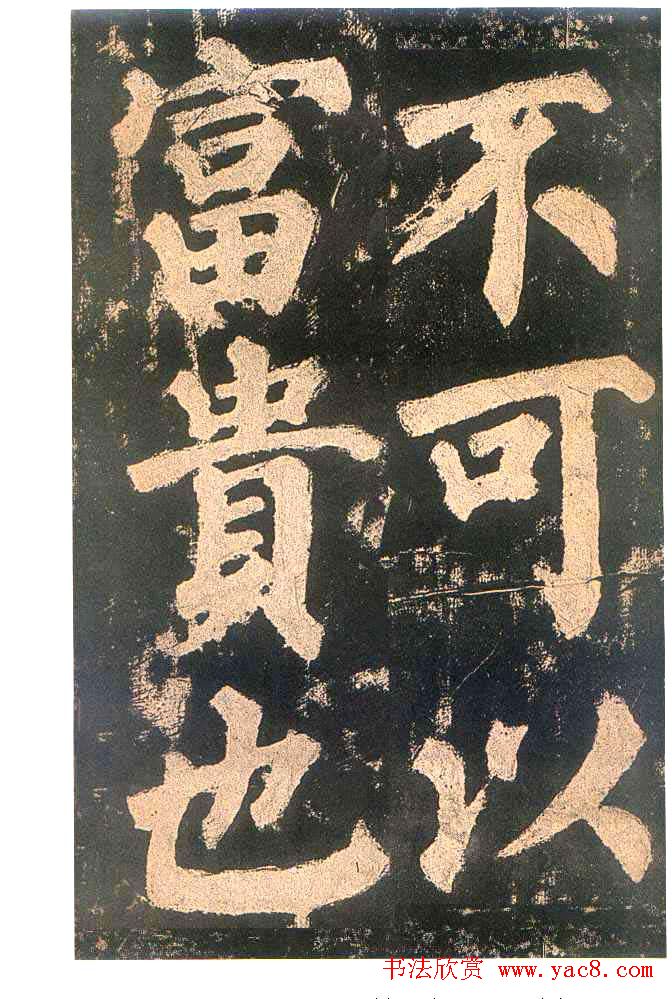 不可以
富貴也
书法欣赏 www.yac8.com